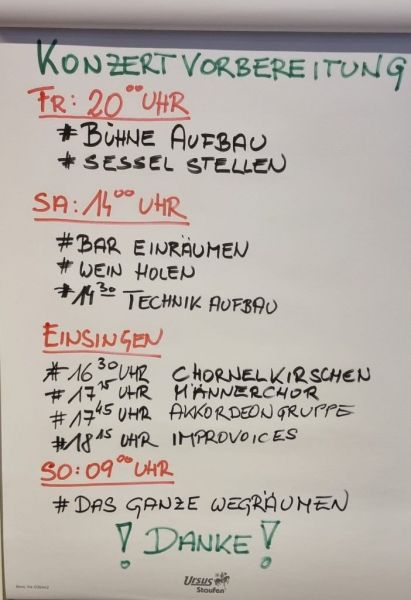 KONZERTVORBEREITUNG
FR: 20⁰⁰ UHR
# BÜHNE AUFBAU
# SESSEL STELLEN
SA: 14⁰⁰ UHR
# BAR EINRÄUMEN
# WEIN HOLEN
# 14³⁰ TECHNIK AUFBAU
EINSINGEN
# 16³⁰ UHR CHORNELKIRSCHEN
# 17¹⁵ UHR MÄNNERCHOR
# 17⁴⁵ UHR AKKORDEONGRUPPE
# 18¹⁵ UHR IMPROVOICES
SO: 09⁰⁰ UHR
# DAS GANZE WEGRÄUMEN
! DANKE !
Ursus
Staufen